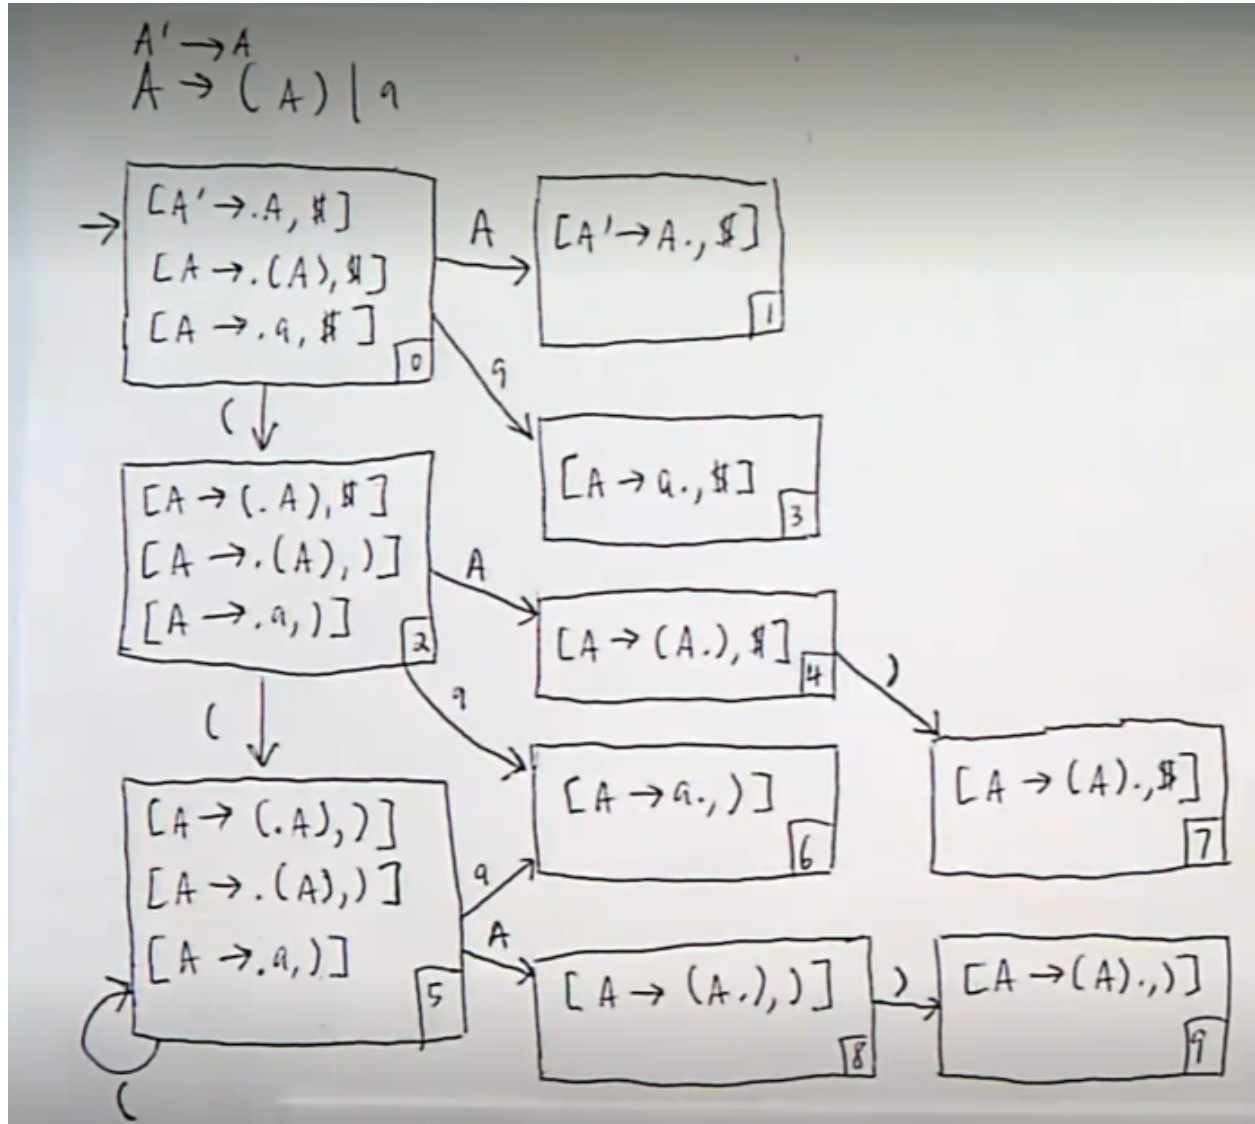 A' → A
A → (A) | a
[A' → .A, $]
[A → .(A), $]
[A → .a, $]
0
A
[A' → A., $]
1
a
(
[A → a., $]
3
[A → (.A), $]
[A → .(A), )]
[A → .a, )]
2
A
[A → (A.), $]
4
)
a
(
[A → a., )]
6
[A → (A)., $]
7
[A → (.A), )]
[A → .(A), )]
[A → .a, )]
5
a
A
[A → (A.), )]
8
)
[A → (A)., )]
9
(